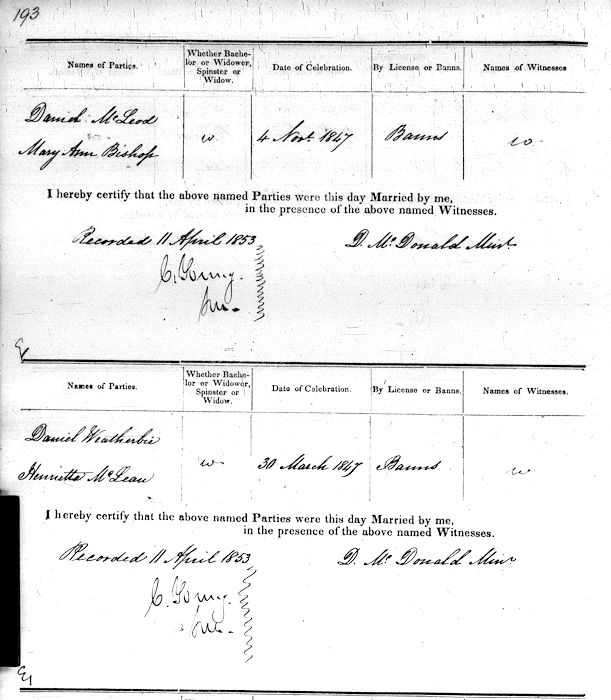 193
Names of Parties.
Whether Bache-
lor or Widower,
Spinster or
Widow.
Date of Celebration.
By License or Banns.
Names of Witnesses
Daniel McLeod
Mary Ann Bishop
4 Novr. 1847
Banns
I hereby certify that the above named Parties were this day Married by me,
in the presence of the above named Witnesses.
Recorded 11 April 1853
D. McDonald Minr
C. Young
Names of Parties.
Whether Bache-
lor or Widower,
Spinster or
Widow.
Date of Celebration.
By License or Banns.
Names of Witnesses.
Daniel Weatherbie
Henrietta McLean
30 March 1847
Banns
I hereby certify that the above named Parties were this day Married by me,
in the presence of the above named Witnesses.
Recorded 11 April 1853
D. McDonald Minr
C. Young.